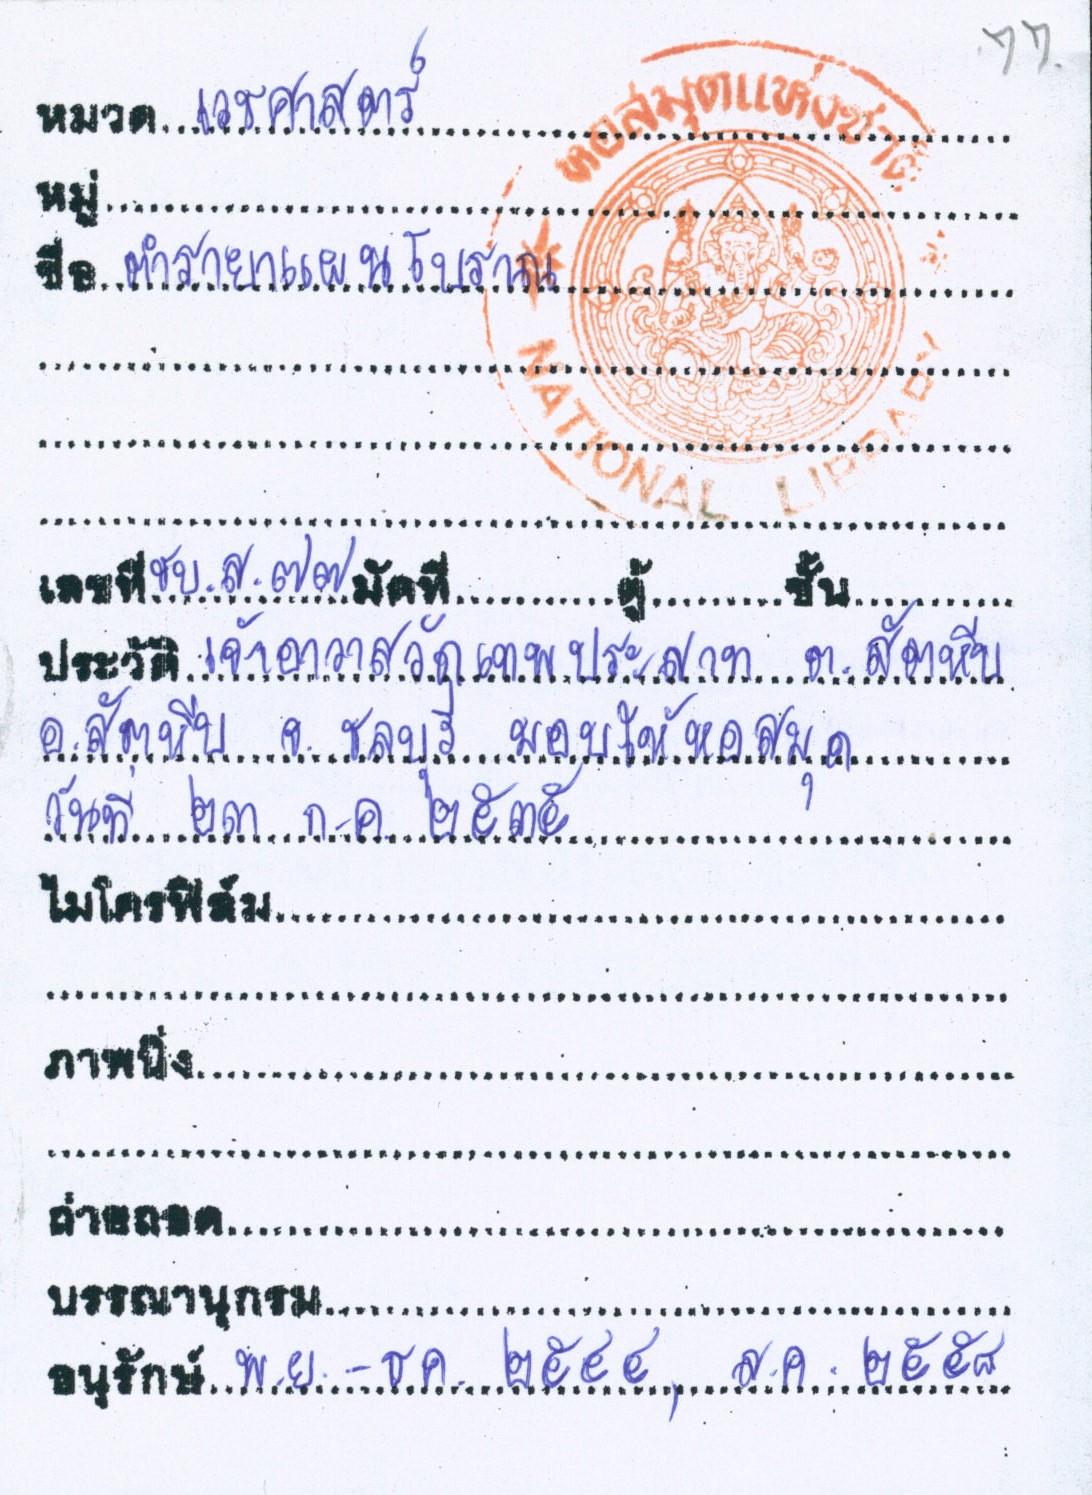 ๗๗.
หอสมุดแห่งชาติ
หมวด เวชศาสตร์
หมู่
ชื่อ ตำรายาแผนโบราณ
NATIONAL LIBRARY
เลขที่ ชบ.ส.๗๗ มัดที่ ตู้ ชั้น
ประวัติ เจ้าอาวาสวัดเทพประสาท ต.สัตหีบ
อ.สัตหีบ จ.ชลบุรี มอบให้หอสมุด
วันที่ ๒๓ ก.ค. ๒๕๓๕
ไมโครฟิล์ม
ภาพนิ่ง
ถ่ายถอด
บรรณานุกรม
อนุรักษ์ พ.ย.-ธค. ๒๕๔๔, ส.ค. ๒๕๕๘